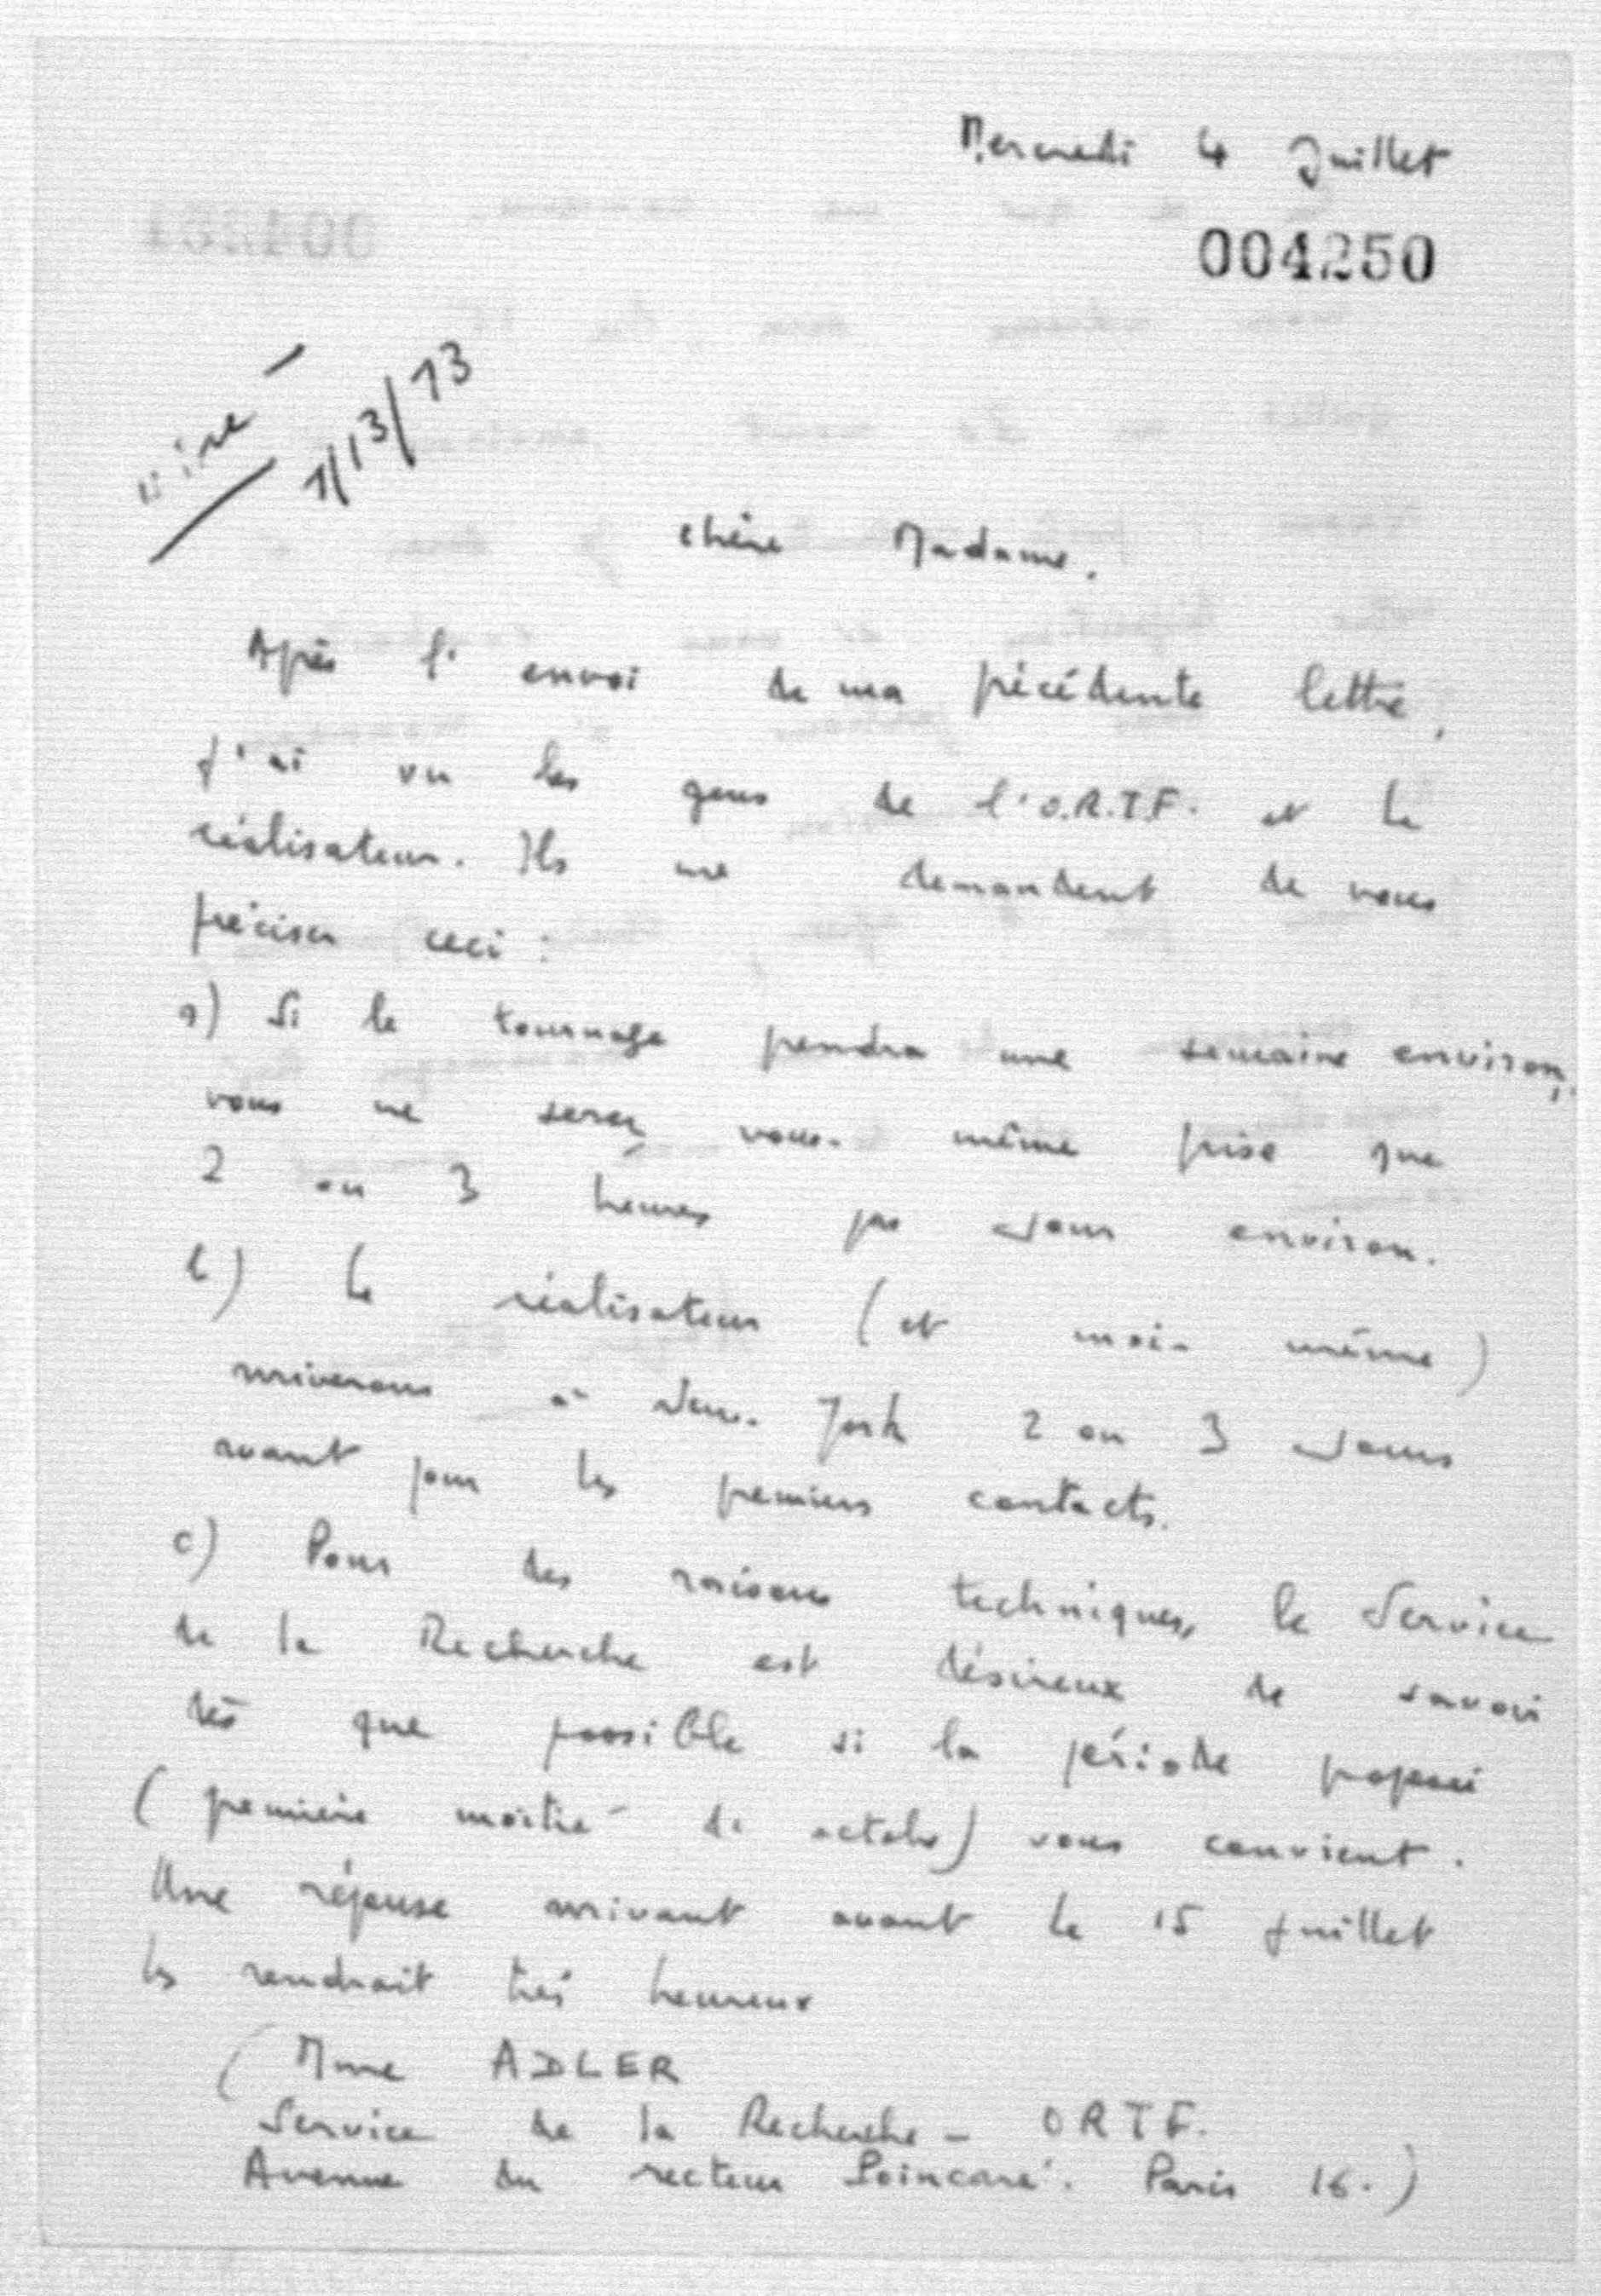 Mercredi 4 Juillet
004250
7/13/73
Chère Madame.
Après l'envoi de ma précédente lettre,
j'ai vu les gens de l'O.R.T.F. et le
réalisateur. Ils me demandent de vous
préciser ceci :
a) Si le tournage prendra une semaine environ,
vous ne serez vous-même prise que
2 ou 3 heures par jour environ.
b) Le réalisateur (et moi-même)
arriverons à New-York 2 ou 3 jours
avant pour les premiers contacts.
c) Pour des raisons techniques, le Service
de la Recherche est désireux de savoir
dès que possible si la période proposée
(première moitié de octobre) vous convient.
Une réponse arrivant avant le 15 juillet
les rendrait très heureux
(Mme ADLER
Service de la Recherche - ORTF.
Avenue du recteur Poincaré. Paris 16.)